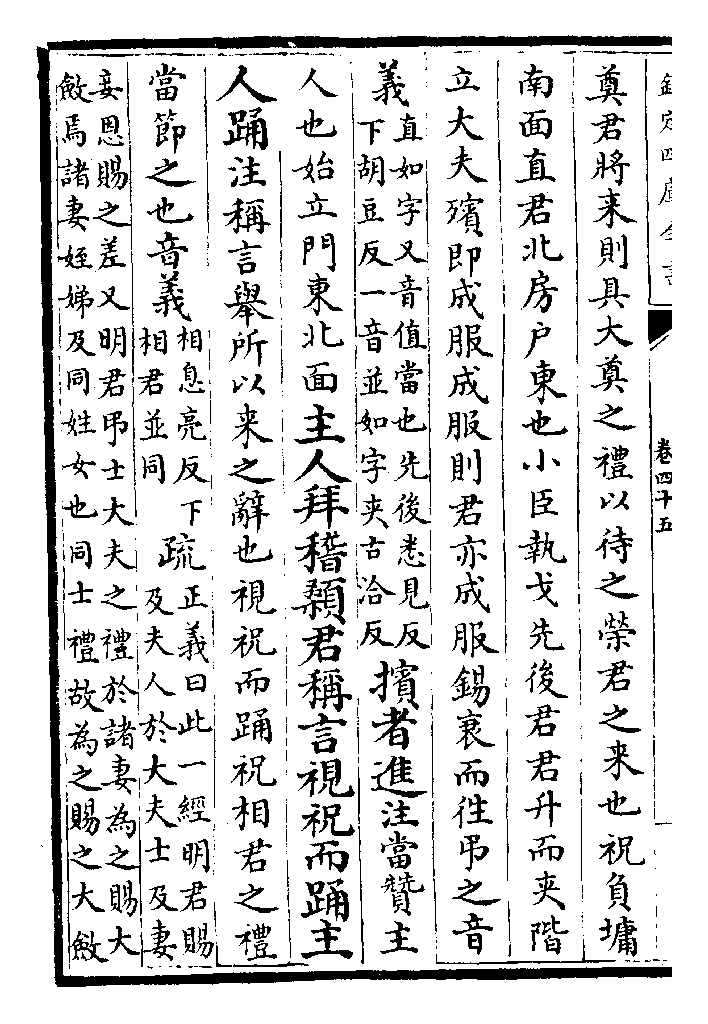 欽定四庫全書
卷四十五
奠君將来則具大奠之禮以待之榮君之来也祝負墉
南面直君北房户東也小臣執戈先後君君升而夾階
立大夫殯即成服成服則君亦成服錫衰而徃弔之音
義直如字又音值當也先後悉見反
下胡豆反一音並如字夾古洽反擯者進注當贊主
人也始立門東北面主人拜稽顙君稱言視祝而踊主
人踊注稱言舉所以来之辭也視祝而踊祝相君之禮
當節之也音義相息亮反下
相君並同疏正義曰此一經明君賜
及夫人於大夫士及妻
妾恩賜之差又明君弔士大夫之禮於諸妻為之賜大
斂焉諸妻姪娣及同姓女也同士禮故為之賜之大斂